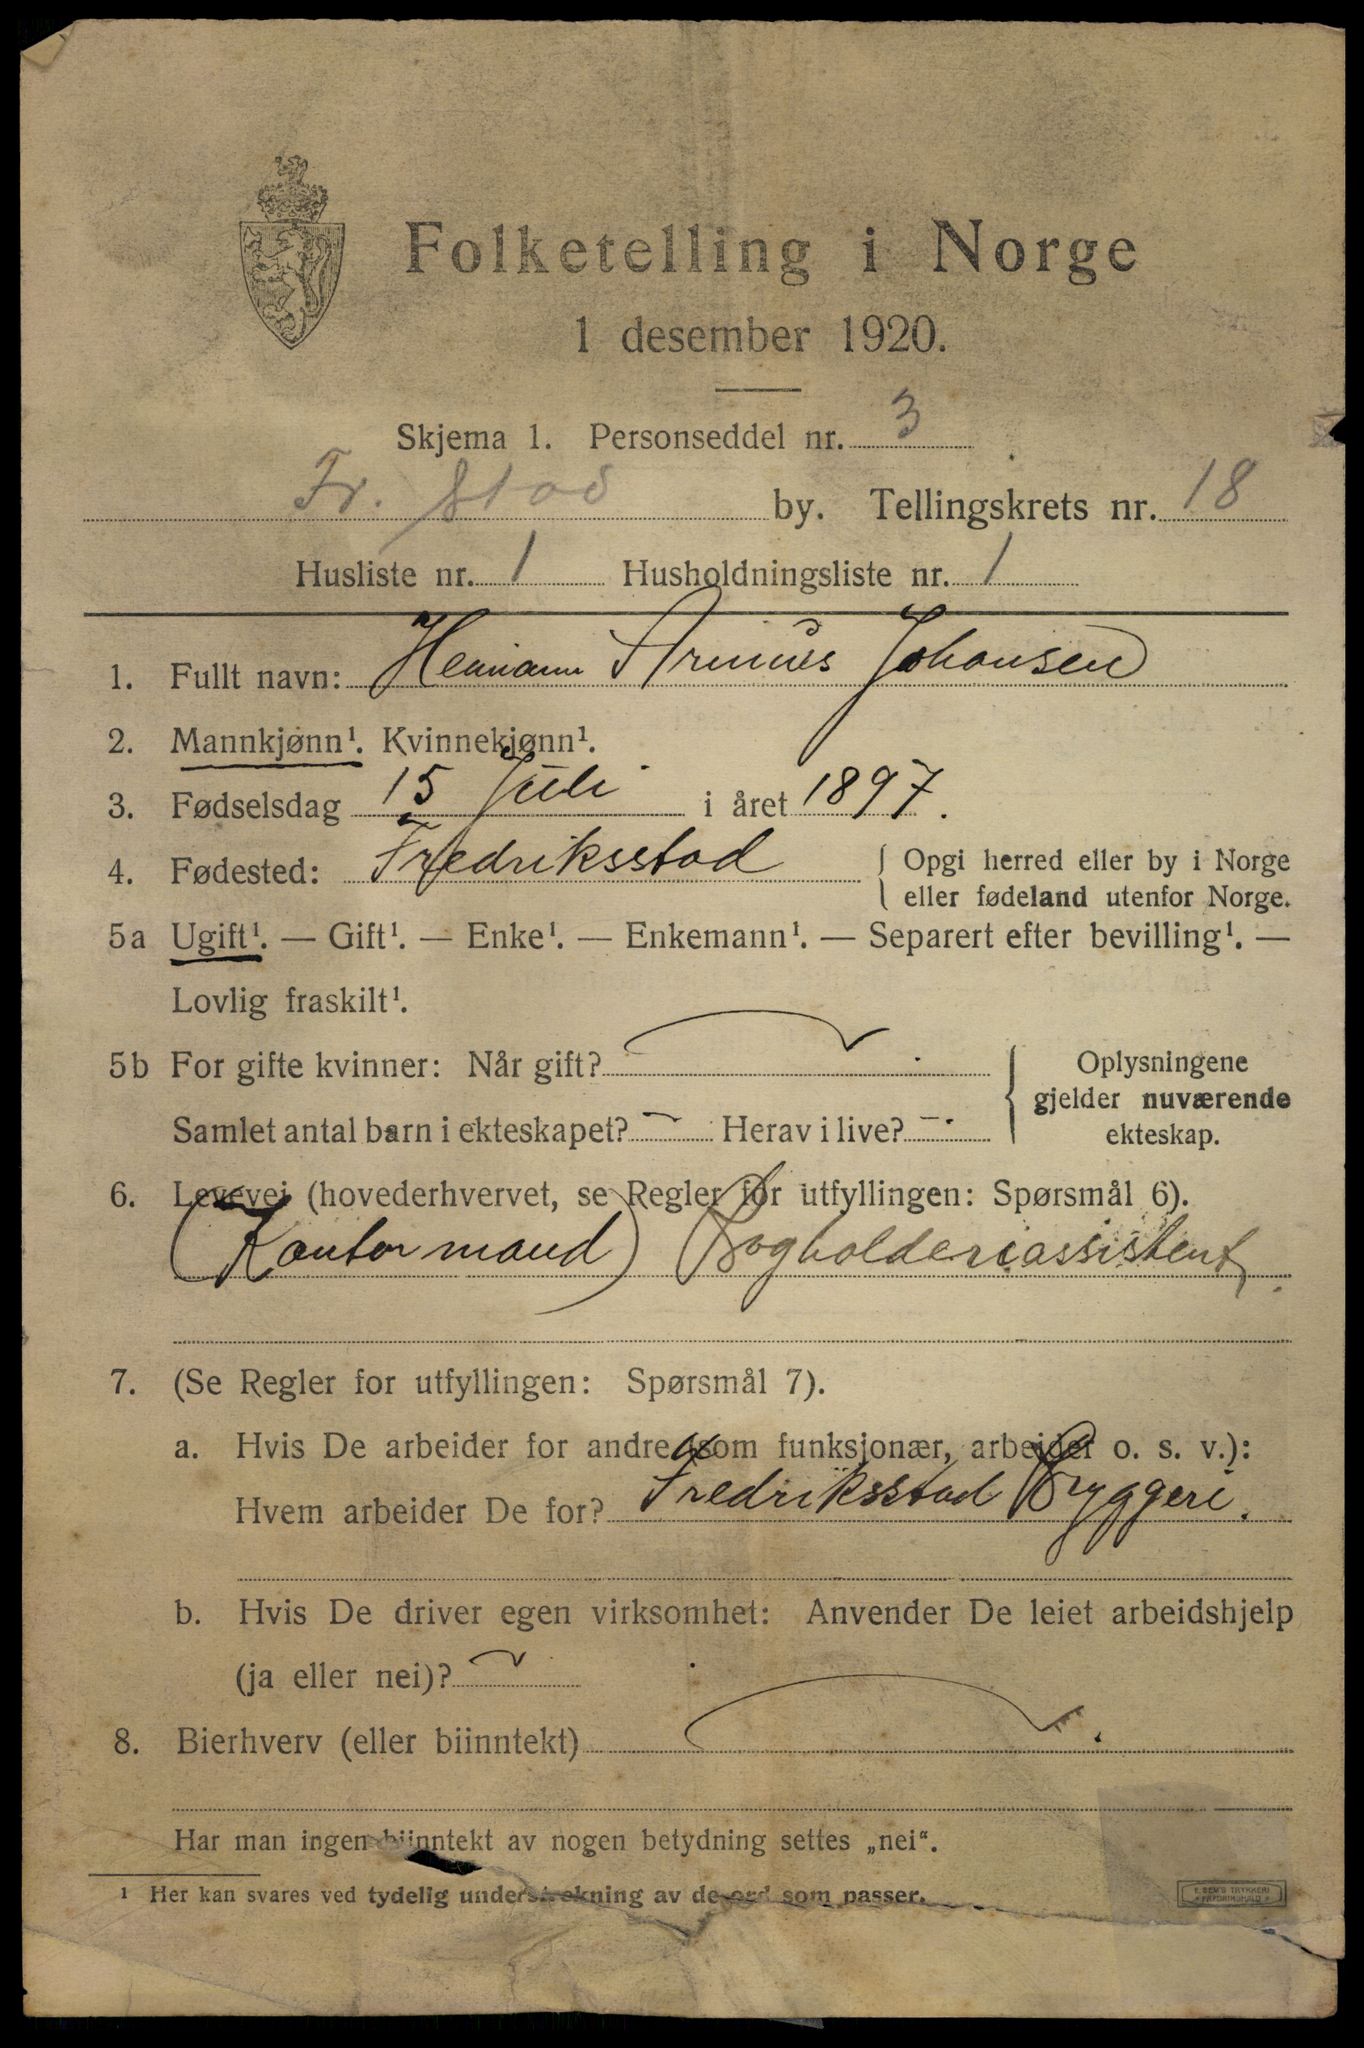 Folketelling i Norge
1 desember 1920.
Skjema 1. Personseddel nr. 3
Fr. stad by. Tellingskrets nr. 18
Husliste nr. 1 Husholdningsliste nr. 1
1. Fullt navn: Hermann Arminius Johansen
2. Mannkjønn¹. Kvinnekjønn¹.
3. Fødselsdag 15 Juli i året 1897.
4. Fødested: Fredriksstad { Opgi herred eller by i Norge
eller fødeland utenfor Norge.
5a Ugift¹. — Gift¹. — Enke¹. — Enkemann¹. — Separert efter bevilling¹. —
Lovlig fraskilt¹.
5b For gifte kvinner: Når gift?
Samlet antal barn i ekteskapet? — Herav i live? —
Oplysningene
gjelder nuværende
ekteskap.
6. Levevei (hovederhvervet, se Regler for utfyllingen: Spørsmål 6).
(Kontormand) Bogholderiassistent.
7. (Se Regler for utfyllingen: Spørsmål 7).
a. Hvis De arbeider for andre (som funksjonær, arbeider o. s. v.):
Hvem arbeider De for? Fredriksstad Bryggeri.
b. Hvis De driver egen virksomhet: Anvender De leiet arbeidshjelp
(ja eller nei)?
8. Bierhverv (eller biinntekt)
Har man ingen biinntekt av nogen betydning settes „nei“.
¹ Her kan svares ved tydelig understrekning av de ord som passer.
E. SEM'S TRYKKERI
FREDRIKSHALD